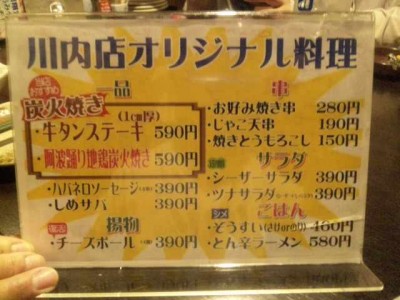 川内店オリジナル料理
当店おすすめ
炭火焼き
品
(1cm厚)
・牛タンステーキ 590円
・阿波踊り地鶏炭火焼き 590円
・ハバネロソーセージ 390円
・しめサバ 390円
揚物
・チーズボール 390円
串
・お好み焼き串 280円
・じゃこ天串 190円
・焼きとうもろこし 150円
サラダ
・シーザーサラダ 390円
・ツナサラダ 390円
ごはん
・ぞうすい 480円
・とん辛ラーメン 580円